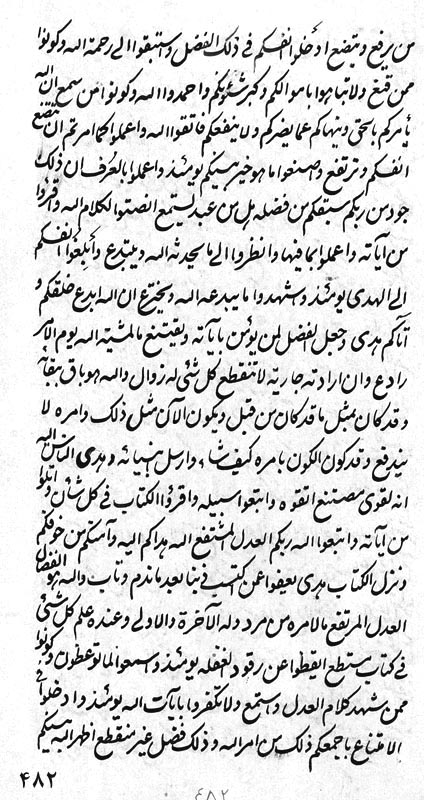 من يرفع ويتضع ادخلوا انفسكم في ذلك الفضل وستبقوا الى رحمة الله وكونوا
ممن قنع ولا تباهوا باموالكم وكبر شئونكم واحمدوا الله وكونوا من سمع ان الله
يأمركم بالحق وينهاكم عما يضركم ولا ينفعكم فاتقوا الله واعملوا كما امرتم ان تتضع
انفسكم وترتفع واصنعوا ما هو خير بينكم يومئذ واعملوا بالعرف ان ذلك
جود من ربكم سبقكم من فضله هل من عبد يستمع انصتوا لكلام الله واقرؤا
من آياته واعملوا بما فيها وانظروا الى ما يحدث الله ويبتدع وابلغوا انفسكم
الى الهدى يومئذ وشهدوا ما يبدعه الله ويخترع ان الله ابدع خلقكم و
آتاكم هدى وجعل الفضل لمن يؤمن بآياته ويقتنع ما لمشية الله يوم الامر
رادع وان ارادته جارية لا تنقطع كل شئ له زوال والله هو باق ببقائه
وقد كان بمثل ما قد كان من قبل ويكون الآن مثل ذلك وامره لا
يندفع وقد كون الكون بامره كيف شاء وارسل انبيائه وهدى الناس اليه
انه لقوي مصتنع اتقوه وابتغوا سبيله واقرؤا الكتاب في كل شأن واتلوا
من آياته واتبعوا الله ربكم العدل المشتفع الله هداكم اليه وآمنكم من خوفكم
ونزل الكتاب هدى يعفو عمن اكتسب ذنبا بعد ما ندم وتاب والله هو الفضال
العدل المرتفع ما لامره من مرد وله الآخرة والاولى وعنده علم كل شئ
في كتاب مستطع ايقظوا عن رقود الغفلة يومئذ واسمعوا لما توعظون وكونوا
ممن شهد كلام العدل واستمع ولا تكفروا بآيات الله يومئذ وادخلوا في
الامتناع باجمعكم ذلك من امر الله وذلك فضل غير منقطع اظهر الله بينكم
۴۸۲
٤٨٢